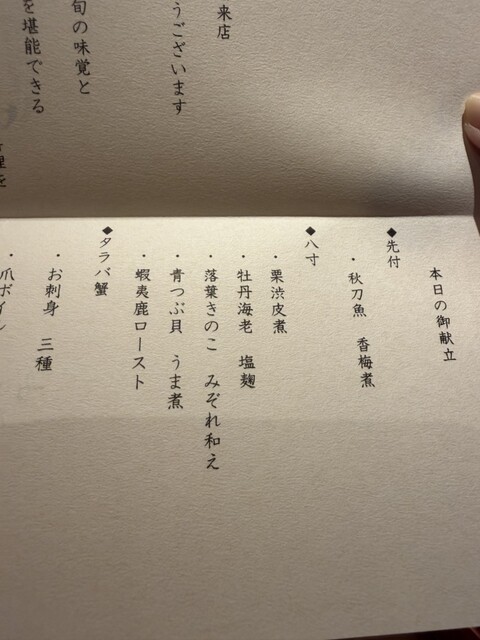 来店
うございます
旬の味覚と
を堪能できる
理を
本日の御献立
◆先付
・秋刀魚　香梅煮
◆八寸
・栗渋皮煮
・牡丹海老　塩麹
・落葉きのこ　みぞれ和え
・青つぶ貝　うま煮
・蝦夷鹿ロースト
◆タラバ蟹
・お刺身　三種
・爪ボイル